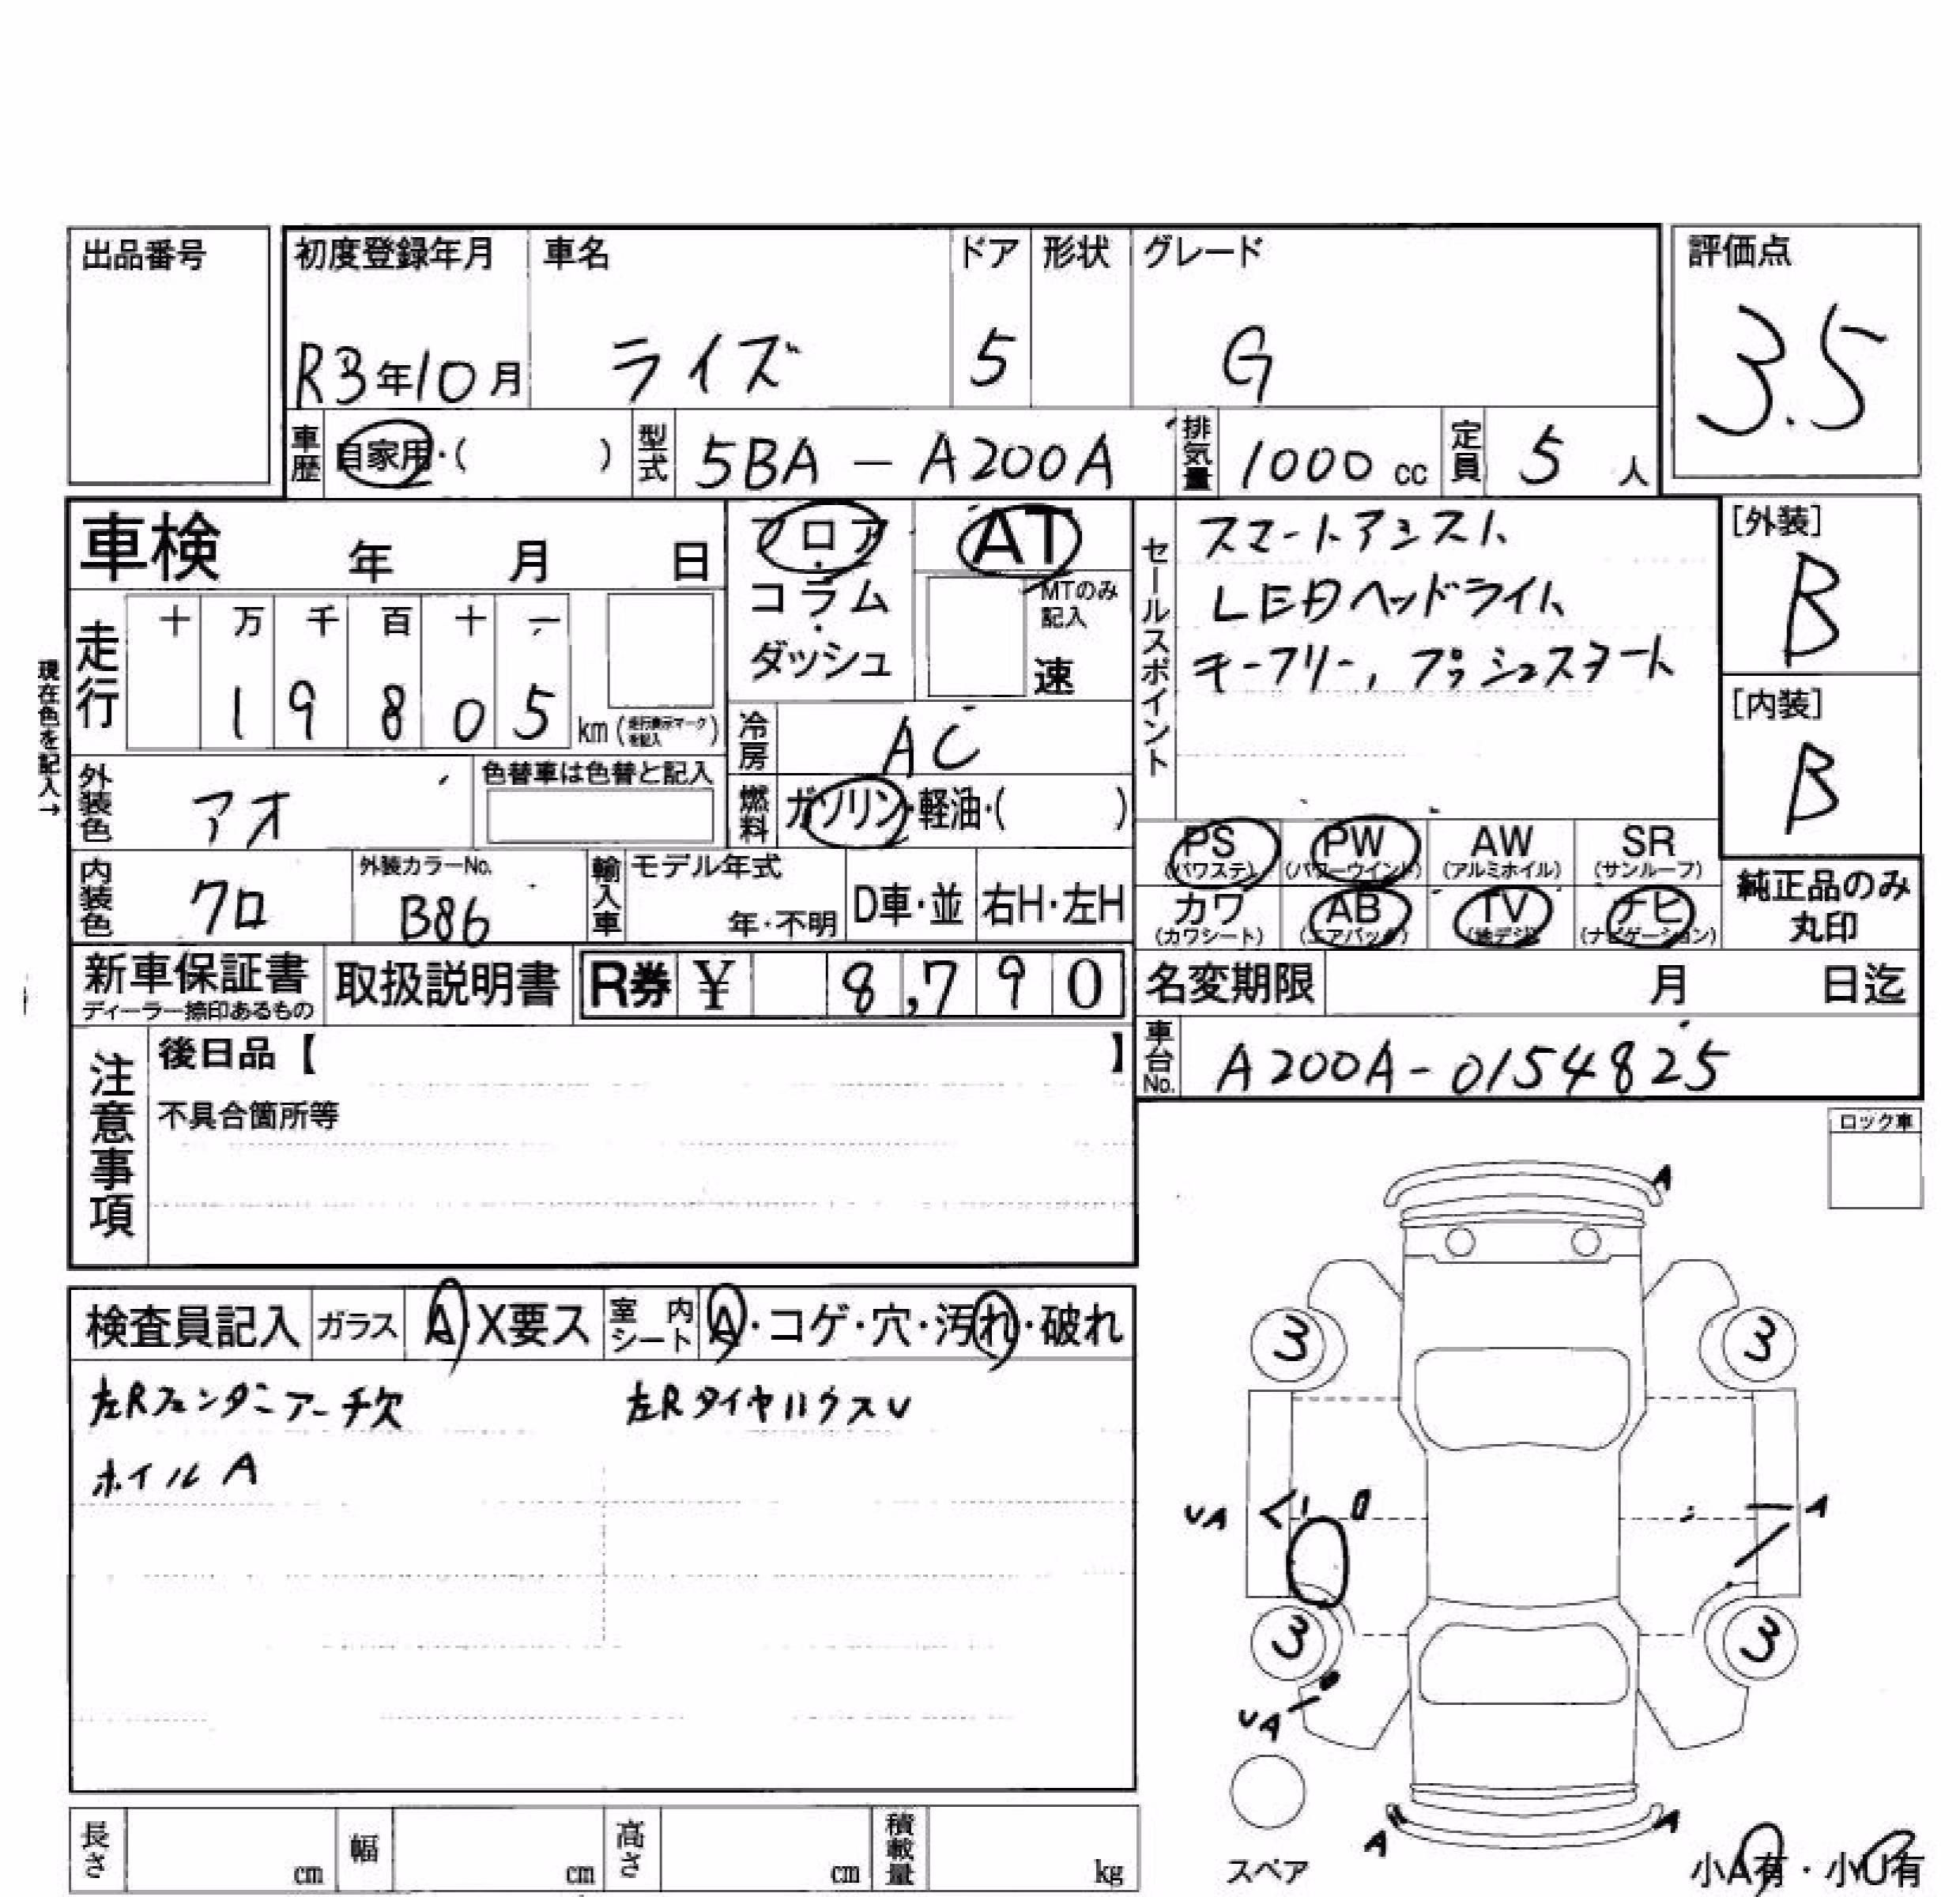 出品番号
初度登録年月 車名 ドア 形状 グレード
評価点
R3年10月 ライズ 5 G
3.5
車歴 自家用・( ) 型式 5BA - A200A 排気量 1000 cc 定員 5 人
車検 年 月 日
フロア・コラム・ダッシュ
AT
MTのみ記入
速
セールスポイント
スマートアシスト
LEDヘッドライト
キーフリー, プッシュスタート
[外装]
B
[内装]
B
現在色を記入→
走行 十 万 千 百 十 一
1 9 8 0 5 km (走行表示マークを記入)
冷房 AC
外装色 アオ 色替車は色替と記入
燃料 ガソリン・軽油・( )
PS (パワステ) PW (パワーウインド) AW (アルミホイル) SR (サンルーフ)
カワ (カワシート) AB (エアバック) TV (地デジ) ナビ (ナビゲーション)
純正品のみ丸印
内装色 クロ 外装カラーNo. B86 輸入車 モデル年式 年・不明 D車・並 右H・左H
新車保証書 ディーラー捺印あるもの 取扱説明書 R券 ¥ 8,790
名変期限 月 日迄
車台No. A200A-0154825
注意事項
後日品【 】
不具合箇所等
ロック車
検査員記入 ガラス A・X要ス 室内シート A・コゲ・穴・汚れ・破れ
左Rフェンダーアーチ欠 左RタイヤハウスU
ホイルA
A
3 3
UA A
3 3
UA
A A
スペア
小A有・小U有
長さ cm 幅 cm 高さ cm 積載量 kg